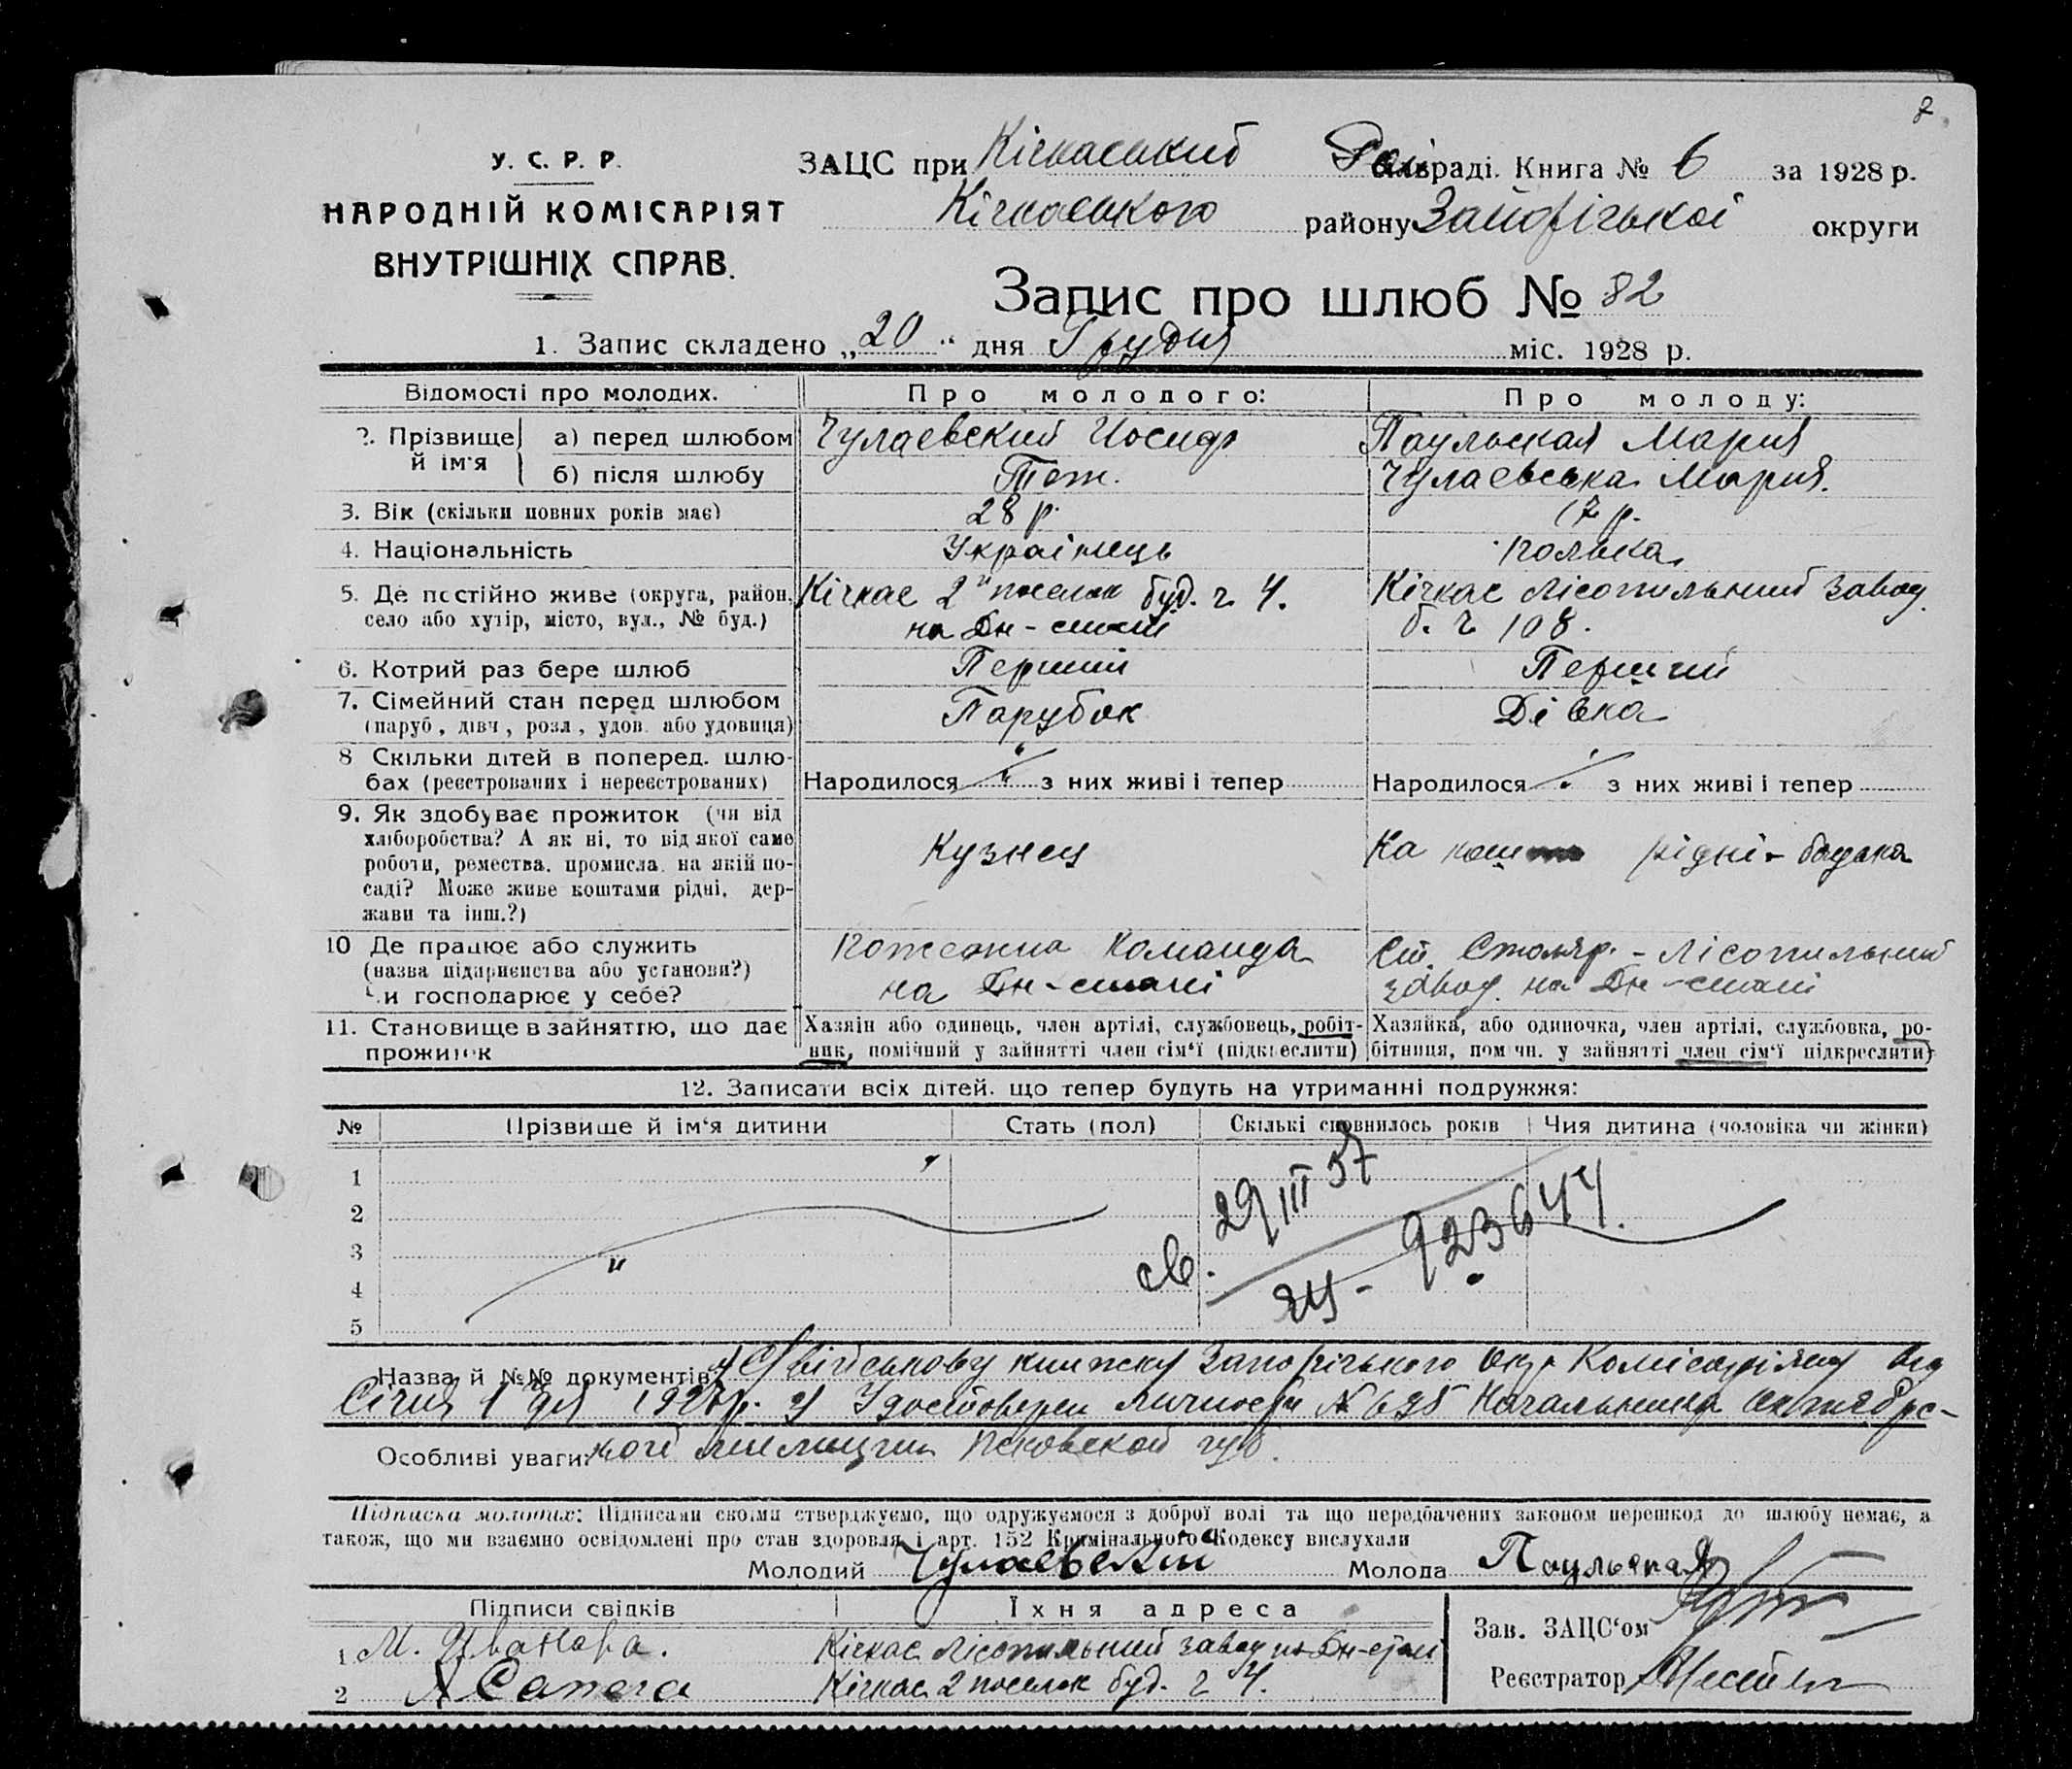 7
У. С. Р. Р.
НАРОДНІЙ КОМІСАРІЯТ
ВНУТРІШНІХ СПРАВ.
ЗАЦС при Кічкаський Рай раді. Книга № 6 за 1928 р.
Кічкаського району Запоріжської округи
Запис про шлюб № 82
1. Запис складено „20“ дня Грудня міс. 1928 р.
Відомості про молодих. Про молодого: Про молоду:
2. Прізвище й ім'я а) перед шлюбом Чулаевский Иосиф Паульская Мария
б) після шлюбу Теж. Чулаевська Мария.
3. Вік (скільки повних років має) 28 р. 17 р.
4. Національність Українець полька
5. Де постійно живе (округа, район, Кічкас 2й поселок буд. ч. 4. Кічкас Лісопильний завод.
село або хутір, місто, вул., № буд.) на Дн-стані б. ч 108.
6. Котрий раз бере шлюб Перший Перший
7. Сімейний стан перед шлюбом Парубок Дівка
(паруб, дівч, розл, удов. або удовиця)
8 Скільки дітей в поперед. шлю-
бах (реєстрованих і нереєстрованих) Народилося з них живі і тепер Народилося з них живі і тепер
9. Як здобуває прожиток (чи від
хліборобства? А як ні, то від якої саме
роботи, ремества, промисла, на якій по- Кузнец На кош рідні - батька
саді? Може живе коштами рідні, дер-
жави та інш.?)
10 Де працює або служить Пожежна команда Ст. Столяр. - Лісопильний
(назва підприємства або установи?) на Дн-стані завод. на Дн-стані
Чи господарює у себе?
11. Становище в зайняттю, що дає Хазяїн або одинець, член артілі, службовець, робіт- Хазяйка, або одиночка, член артілі, службовка, ро-
прожиток ник, помічний у зайнятті член сім'ї (підкреслити) бітниця, пом чн. у зайнятті член сім'ї підкреслити)
12. Записати всіх дітей. що тепер будуть на утриманні подружжя:
№ Прізвище й ім'я дитини Стать (пол) Скількі сповнилось років Чия дитина (чоловіка чи жінки)
1
2
3
4
5
св. 29/III 37
ЯЧ - 923644.
Назва й №№ документів Військову книжку Запоріжського Окр. Комісаріяту від
Січня 1 дня 192 р. 2) Удостоверен личности № 695 Начальника октябрс-
Особливі уваги: кой милиции Псковской губ.
Підписка молодих: Підписами своїми стверджуємо, що одружуємося з доброї волі та що передбачених законом перешкод до шлюбу немає, а
також, що ми взаємно освідомлені про стан здоровля і арт. 152 Кримінального Кодексу вислухали
Молодий Чулаевский Молода Паульская
Підписи свідків Їхня адреса
Зав. ЗАЦС'ом
1 М. Иванова. Кічкас Лісопильний завод на Дн-стані
2 А Сапега Кічкас 2 поселок буд. ч 4.
Реєстратор